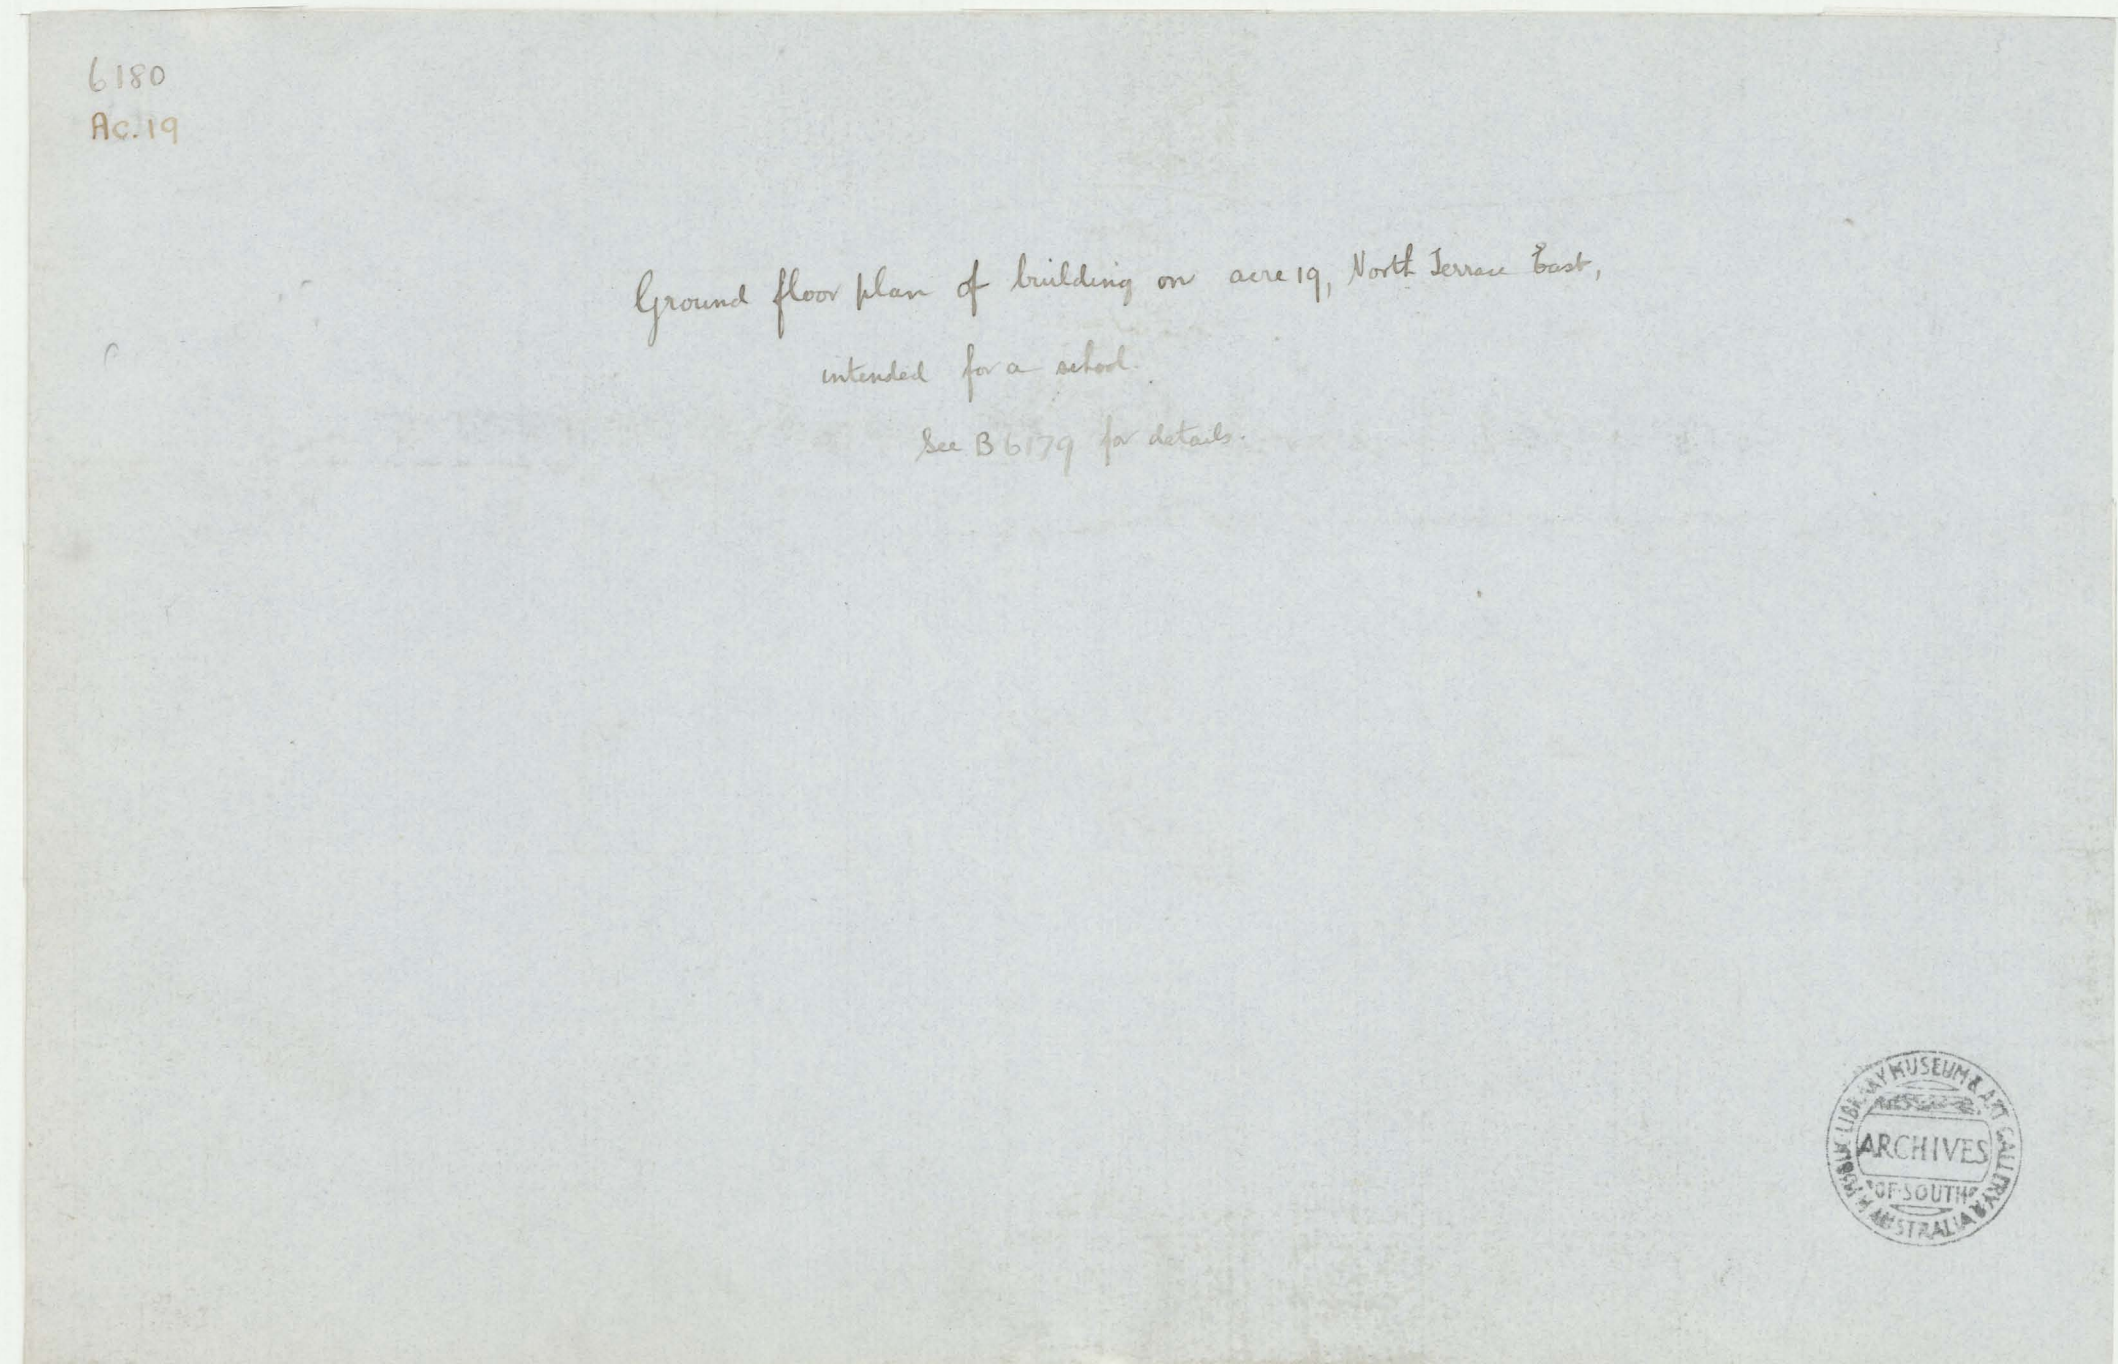 6180
Ac. 19
Ground floor plan of building on acre 19, North Terrace East,
intended for a school.
See B 6179 for details.
PUBLIC LIBRARY MUSEUM & ART GALLERY
ARCHIVES
OF SOUTH
AUSTRALIA